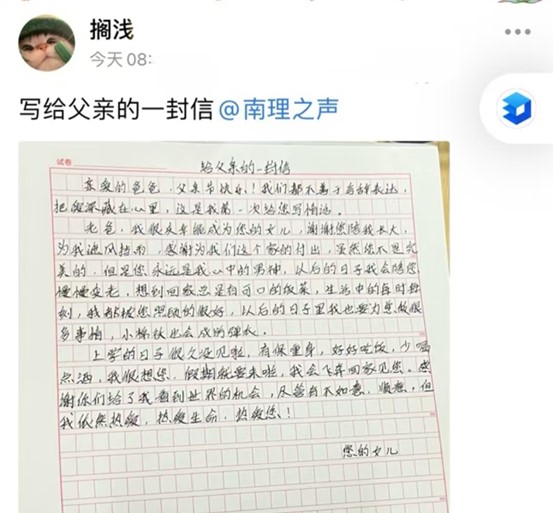 搁浅
今天 08:
写给父亲的一封信 @南理之声
试卷
给父亲的一封信
亲爱的爸爸，父亲节快乐！我们都不善于言辞表达，
把爱深藏在心里，这是我第一次给您写情话。
老爸，我很庆幸能成为您的女儿，谢谢您陪我长大，
为我遮风挡雨，感谢为我们这个家的付出，虽然您不是完
美的，但是您永远是我心中的男神，以后的日子我会陪您
慢慢变老，想到回家总是有可口的饭菜，生活中的每时每
刻，我都被您照顾的很好，以后的日子里我也要为您做很
多事情，小棉袄也会成为铠大。
上学的日子很久没见啦，有保重身，好好吃饭，少喝
点酒，我很想您，假期就要来啦，我会飞奔回家见您。感
谢你们给了我看到世界的机会，尽管有不如意，顺意，但
我依然热爱，热爱生命，热爱您！
您的女儿